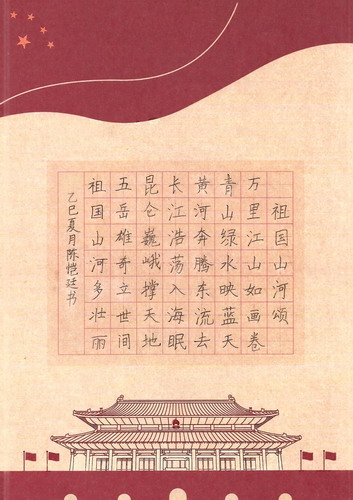 祖国山河颂
万里江山如画卷
青山绿水映蓝天
黄河奔腾东流去
长江浩荡入海眠
昆仑巍峨撑天地
五岳雄奇立世间
祖国山河多壮丽
乙巳夏月陈恺廷书